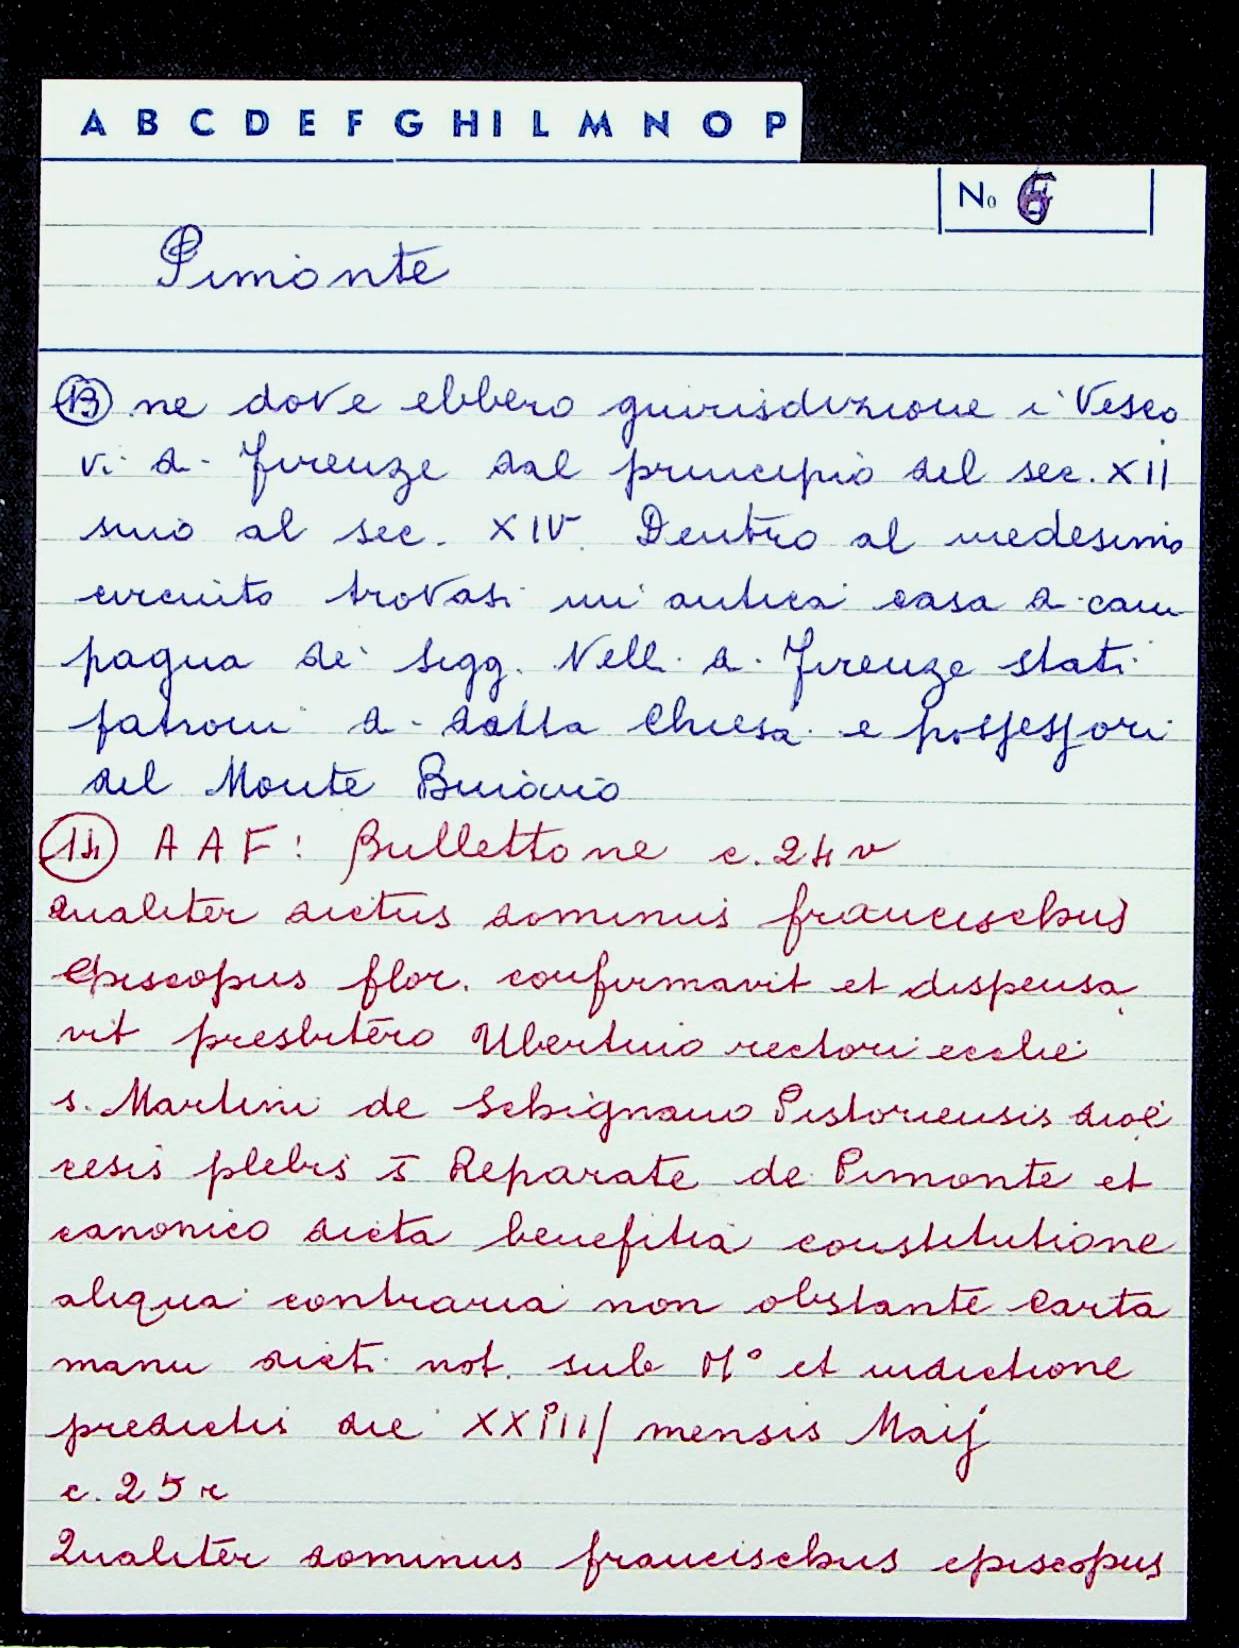 A B C D E F G H I L M N O P
No 6
Pimonte
13 ne dove ebbero guirisdizione i Vesco
vi di Firenze dal principio del sec. XII
sino al sec. XIV. Dentro al medesimo
circuito trovasi un'antica casa di cam
pagna dei Sigg. Nelli di Firenze stati
patroni di detta Chiesa e possessori
del Monte Buiano
14 A A F: Bullettone c. 24 v
Qualiter dictus dominus francischus
episcopus flor. confirmavit et dispensa
vit presbitero Ubertino rectori ecclie
s. Martini de Schignano Pistoriensis dioe
cesis plebis s̄ Reparate de Pimonte et
canonico dicta benefitia constitutione
aliqua contraria non obstante Carta
manu dicti not. sub M° et indictione
predictis die XXVIII mensis Maij
c. 25 r
Qualiter dominus francischus episcopus